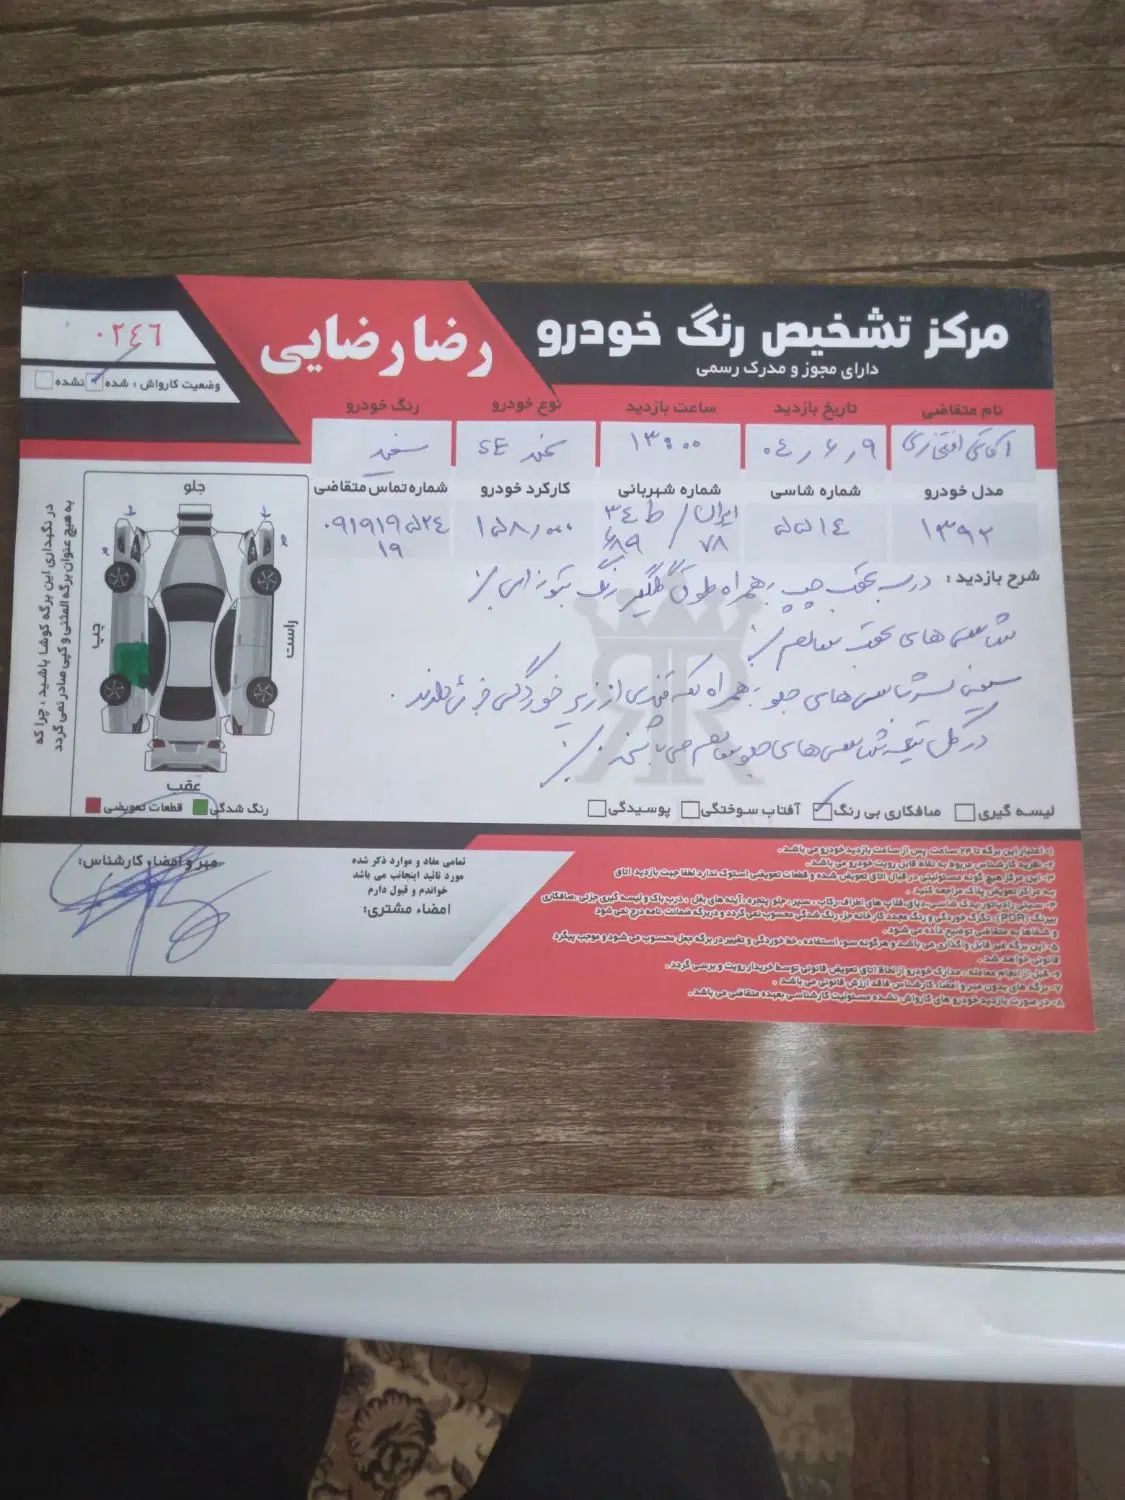 مرکز تشخیص رنگ خودرو
رضا رضایی
دارای مجوز و مدرک رسمی
۰۲٤٦
وضعیت کارواش : شده نشده
نام متقاضی
تاریخ بازدید
ساعت بازدید
نوع خودرو
رنگ خودرو
آقای افتخاری
۰۴٫۶٫۹
۱۳:۰۰
سمند SE
سفید
مدل خودرو
شماره شاسی
شماره شهربانی
کارکرد خودرو
شماره تماس متقاضی
۱۳۹۲
۵۵۱٤
ایران ۷۸ / ۳٤ ط
۱۵۸٫۰۰۰
۰۹۱۹۱۹۵۲٤
۱۹
شرح بازدید : درب عقب چپ بهمراه طوق گلگیر رنگ
شاسی های عقب سالم
سینی شاسی های جلو بهمراه از زیر خوردگی
در کل تیغه شاسی های جلو سالم می باشند
لیسه گیری
صافکاری بی رنگ
آفتاب سوختگی
پوسیدگی
جلو
راست
چپ
عقب
رنگ شدگی
قطعات تعویضی
در نگهداری این برگه کوشا باشید ، چرا که
به هیچ عنوان برگه المثنی و کپی صادر نمی گردد
مهر و امضاء کارشناس:
تمامی مفاد و موارد ذکر شده
مورد تائید اینجانب می باشد
خواندم و قبول دارم
امضاء مشتری:
۱- اعتبار این برگه تا ۲۴ ساعت پس از ساعت بازدید خودرو می باشد.
۲- نظریه کارشناس مربوط به نقاط قابل رویت خودرو می باشد.
۳- این مرکز هیچ گونه مسئولیتی در قبال اتاق تعویض شده و قطعات تعویضی استوک ندارد لطفا جهت بازدید اتاق
به مراکز تعویض پلاک مراجعه کنید.
۴- سینی رادیاتور، یدک شاسی، دیاق، قلاپ های اطراف، رکاب ، سپر ، جلو پنجره ، آینه های بغل ، درب باک و لیسه گیری جزئی ،صافکاری
بیرنگ (PDR) ، تگرگ خوردگی و رنگ مجدد کارخانه جزء رنگ شدگی محسوب نمی گردد و در برگه ضمانت نامه درج نمی شود
و شفاها به متقاضی توضیح داده می شود.
۵- این برگه غیر قابل واگذاری می باشد و هرگونه سوء استفاده ، خط خوردگی و تغییر در برگه جعل محسوب می شود و موجب پیگرد
قانونی خواهد شد.
۶- قبل از انجام معامله ، مدارک خودرو از لحاظ اتاق تعویض قانونی توسط خریدار رویت و بررسی گردد.
۷- برگه های بدون مهر و امضاء کارشناس فاقد ارزش قانونی می باشد.
۸- در صورت بازدید خودرو های کارواش نشده مسئولیت کارشناسی بعهده متقاضی می باشد.